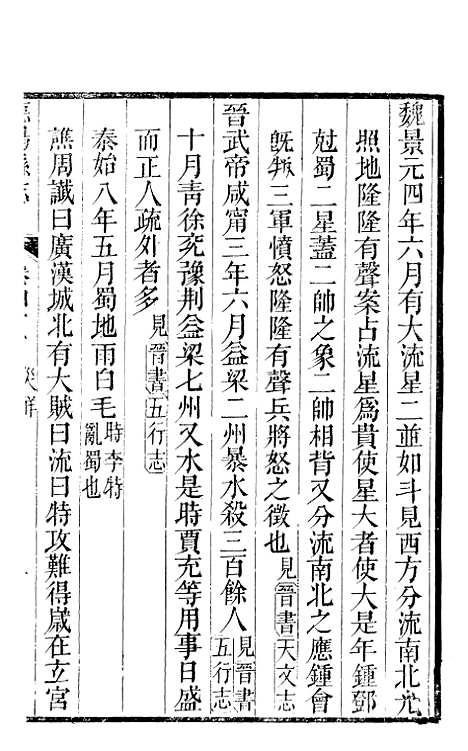 魏景元四年六月有大流星二並如斗見西方分流南北光
照地隆隆有聲案占流星爲貴使星大者使大是年鍾鄧
尅蜀二星蓋二帥之象二帥相背又分流南北之應鍾會
旣叛三軍憤怒隆隆有聲兵將怒之徵也見晉書天文志
晉武帝咸甯三年六月益梁二州暴水殺三百餘人見晉書五行志
十月靑徐兖豫荆益梁七州又水是時賈充等用事日盛
而正人疏外者多見晉書五行志
泰始八年五月蜀地雨白毛時李特亂蜀也
譙周讖曰廣漢城北有大賊曰流曰特攻難得歲在立宮
卷四 災祥